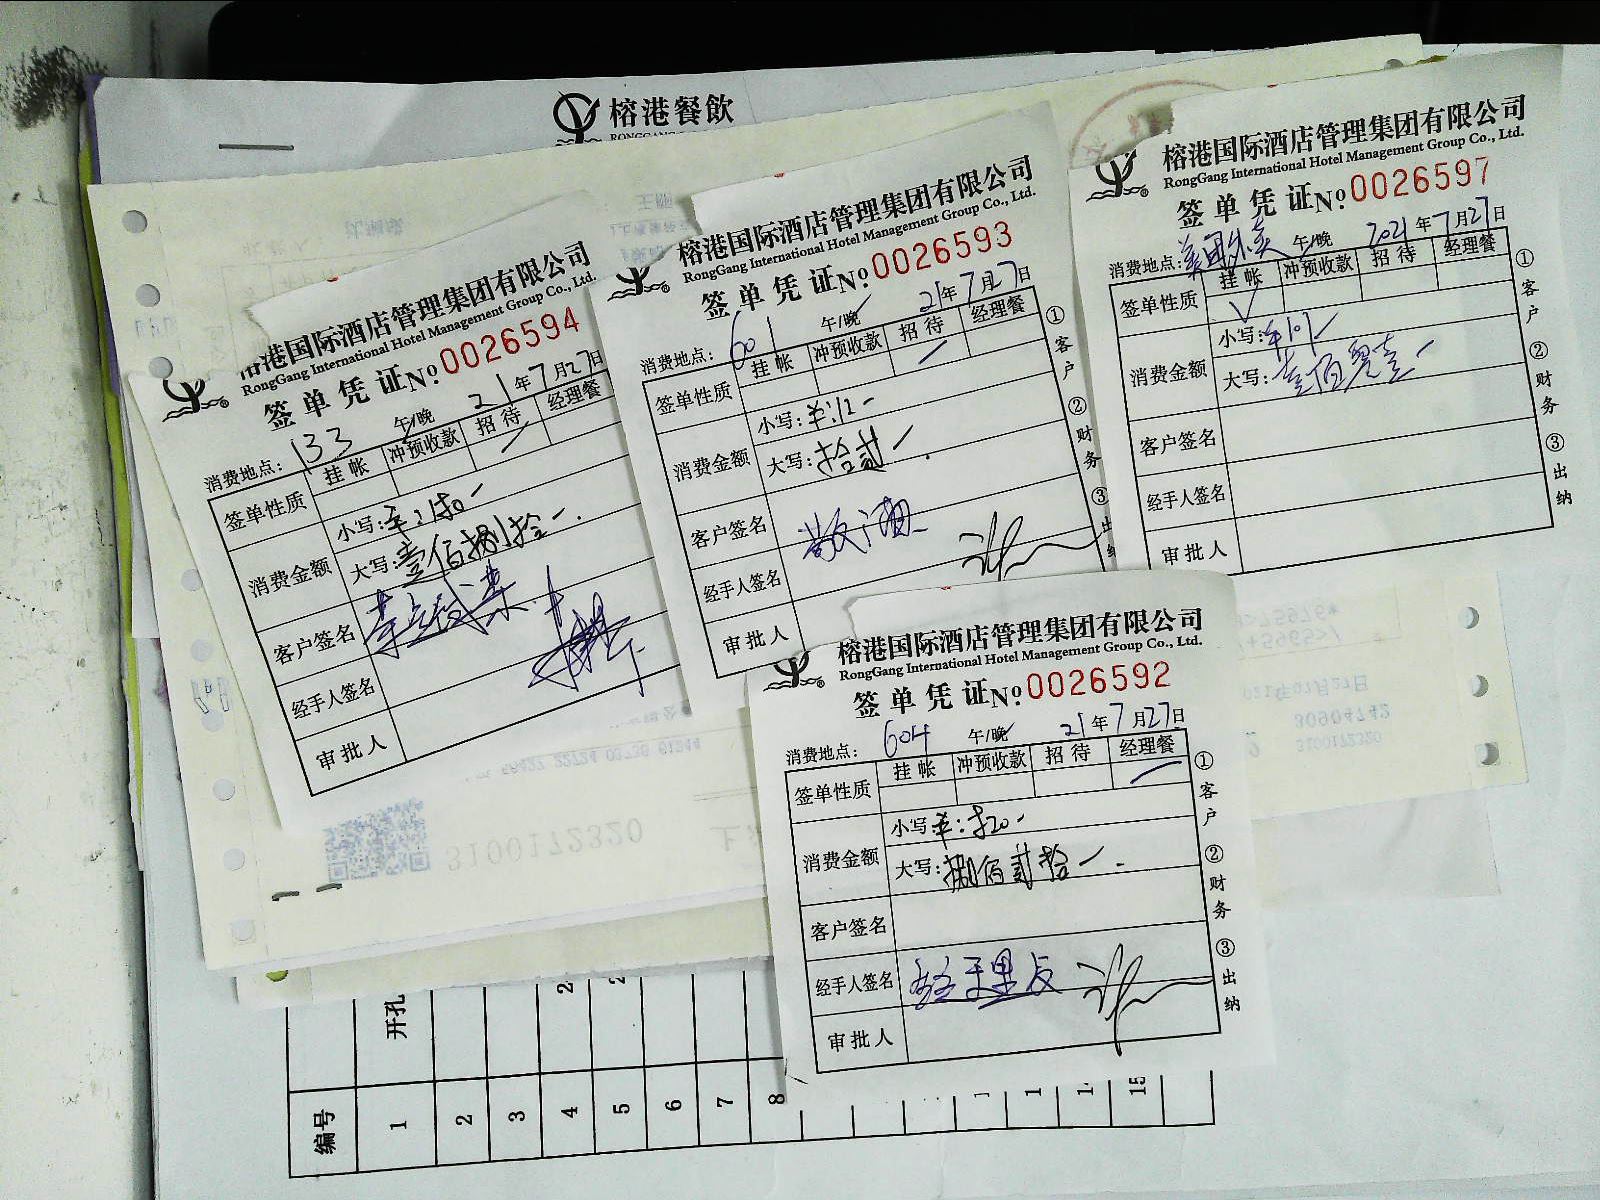 榕港餐飲
榕港国际酒店管理集团有限公司
RongGang International Hotel Management Group Co., Ltd.
签单凭证 No 0026594
消费地点: 133 午/晚 21年7月27日
签单性质 挂帐 冲预收款 招待 经理餐
消费金额 小写:
大写: 壹佰捌拾
客户签名
经手人签名
审批人
榕港国际酒店管理集团有限公司
RongGang International Hotel Management Group Co., Ltd.
签单凭证 No 0026593
消费地点: 601 午/晚 21年7月27日
签单性质 挂帐 冲预收款 招待 经理餐
消费金额 小写: 12
大写: 拾贰
客户签名
经手人签名
审批人
①客户 ②财务 ③出纳
榕港国际酒店管理集团有限公司
RongGang International Hotel Management Group Co., Ltd.
签单凭证 No 0026597
消费地点: 美团外卖 午/晚 2021年7月27日
签单性质 挂帐 冲预收款 招待 经理餐
消费金额 小写: 101
大写: 壹佰零壹
客户签名
经手人签名
审批人
①客户 ②财务 ③出纳
榕港国际酒店管理集团有限公司
RongGang International Hotel Management Group Co., Ltd.
签单凭证 No 0026592
消费地点: 604 午/晚 21年7月27日
签单性质 挂帐 冲预收款 招待 经理餐
消费金额 小写 820
大写: 捌佰贰拾
客户签名
经手人签名
审批人
①客户 ②财务 ③出纳
3100172320
开孔
编号 1 2 3 4 5 6 7 8 15